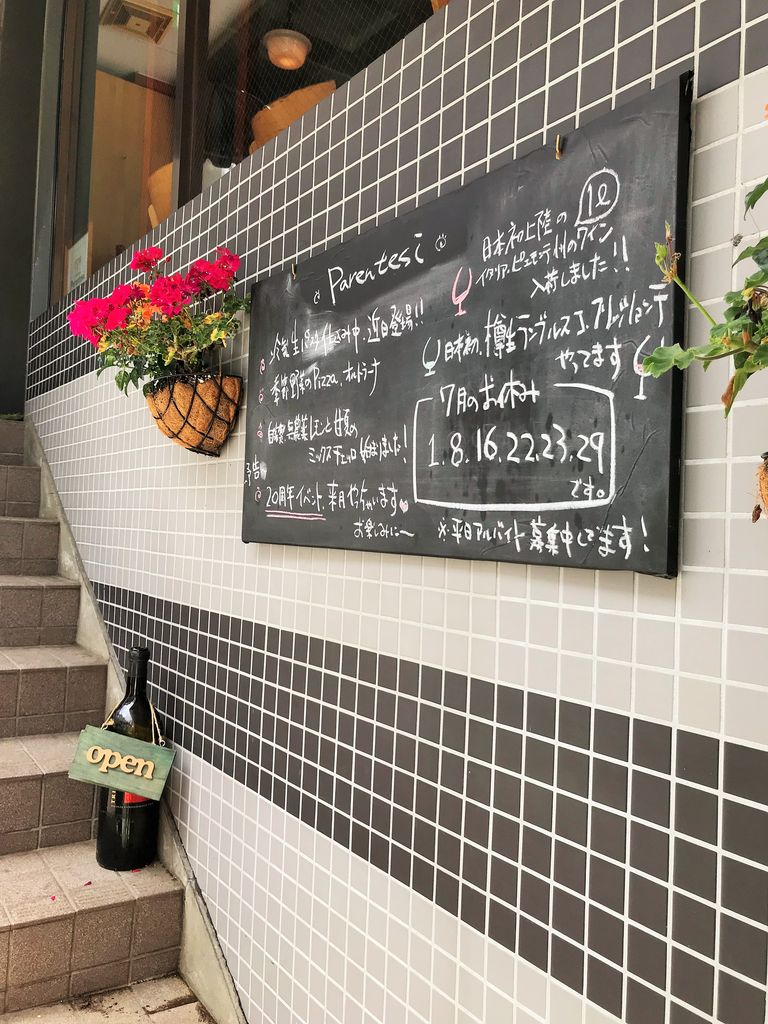 Parentesi
近日登場!!
季節野菜のPizza オルトラーナ
自家製 無農薬レモンと甘夏の
ミックスチェッロ 始めました!
予告
20周年イベント、来月やっちゃいます
お楽しみに〜
日本初上陸の
イタリア・ピエモンテ州のワイン
入荷しました!!
日本初、樽生ランブルスコ、
やってます
7月のお休み
1.8.16.22.23.29
です。
※平日アルバイト募集中してます!
open